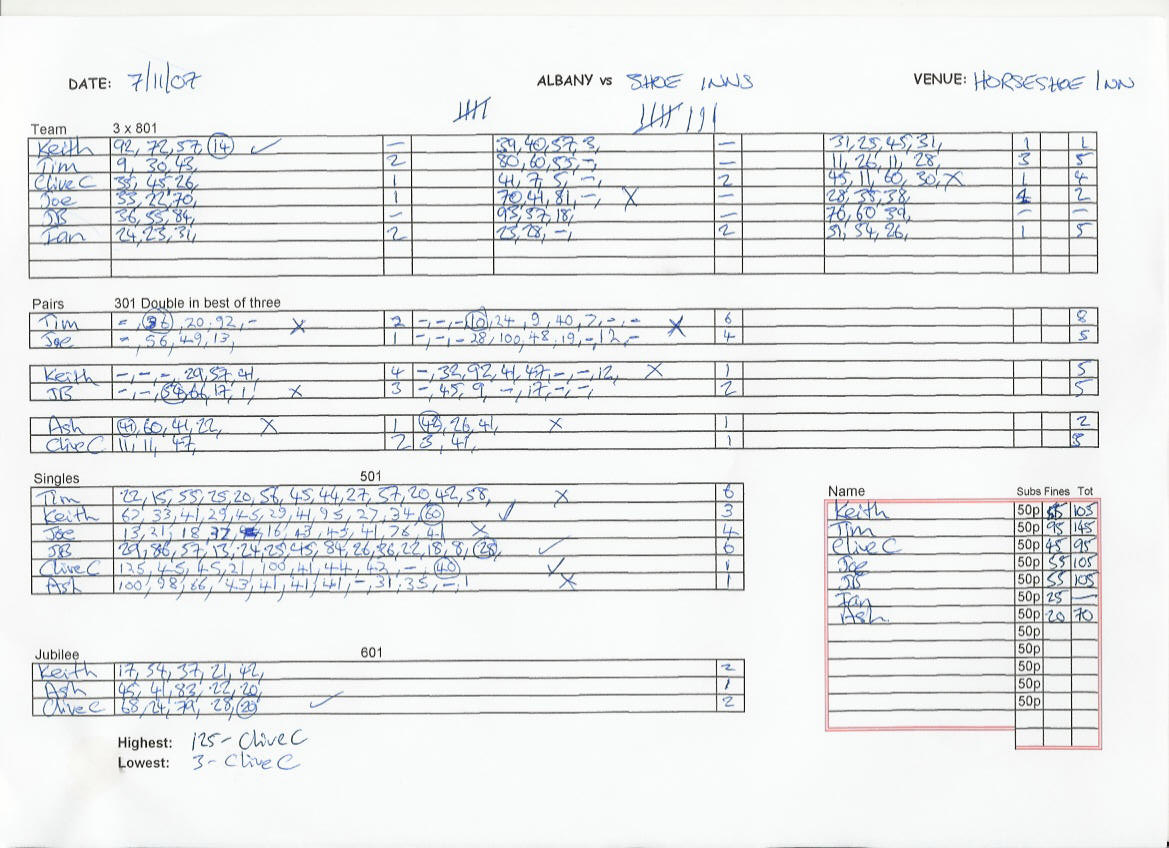 DATE: 7/11/07 ALBANY vs SHOE INNS VENUE: HORSESHOE INN
Team 3 x 801
Keith 92, 72, 57, 14 ✓ — 39, 40, 57, 3, — 31, 25, 45, 31, 1 1
Tim 9, 30, 43, 2 80, 60, 55, -, — 11, 26, 11, 28, 3 5
Clive C 38, 45, 26, 1 41, 7, 5, -, 2 45, 11, 60, 30, X 1 4
Joe 33, 22, 70, 1 70, 41, 81, -, X — 28, 35, 38, 2
JB 36, 55, 84, — 95, 37, 18, — 76, 60, 39, — —
Ian 24, 23, 31, 2 23, 28, -, 2 51, 54, 26, 1 5
Pairs 301 Double in best of three
Tim -, 36, 20, 92, - X 2 -, -, -, 10, 24, 9, 40, 7, -, - X 6 8
Joe -, 56, 49, 13, 1 -, -, - 28, 100, 48, 19, -, 12, - 4 5
Keith -, -, -, 29, 57, 41 4 -, 32, 92, 41, 47, -, -, 12, X 1 5
JB -, -, 54, 66, 17, 1, X 3 -, 45, 9, -, 17, -, -, 2 5
Ash 41, 60, 41, 22, X 1 42, 26, 41, X 1 2
Clive C 11, 11, 47, 2 3, 41, 1 3
Singles 501
Tim 22, 15, 55, 25, 20, 56, 45, 44, 27, 57, 20, 42, 58, X 6
Keith 67, 33, 41, 29, 45, 29, 41, 95, 27, 34, 60 ✓ 3
Joe 13, 21, 18, 37, 16, 43, 45, 41, 76, 4 X 4
JB 29, 86, 57, 13, 24, 25, 45, 84, 26, 36, 22, 18, 8, 28, ✓ 6
Clive C 125, 45, 45, 21, 100, 41, 44, 42, -, 40 ✓ 1
Ash 100, 98, 66, 43, 41, 41, 41, -, 31, 35, -, 1 X 1
Name Subs Fines Tot
Keith 50p 55 105
Tim 50p 95 145
Clive C 50p 45 95
Joe 50p 55 105
JB 50p 55 105
Ian 50p 25 —
Ash 50p 20 70
50p
50p
50p
50p
50p
Jubilee 601
Keith 17, 54, 37, 21, 42, 2
Ash 45, 41, 83, 22, 20, 1
Clive C 68, 24, 79, 28, 20 ✓ 2
Highest: 125 - Clive C
Lowest: 3 - Clive C